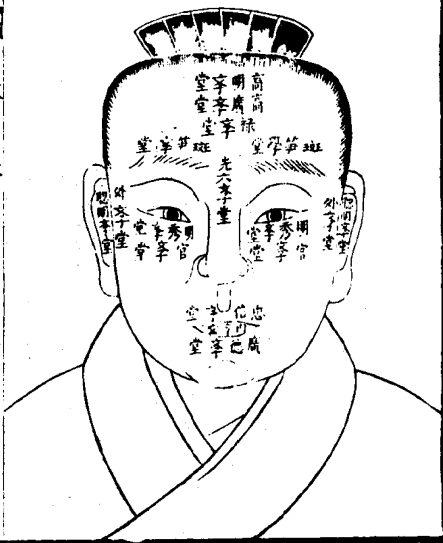 高明學堂
高廣學堂
祿學堂
班笋學堂
班笋學堂
光大學堂
聰明學堂
外學堂
明秀學堂
官學堂
明秀學堂
官學堂
外學堂
聰明學堂
忠信學堂
廣德學堂